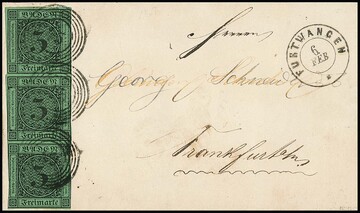 BADEN
3
Freimarke
BADEN
3
Freimarke
BADEN
3
Freimarke
FURTWANGEN
6.
FEB
Herrn
Georg Schneider
Frankfurt